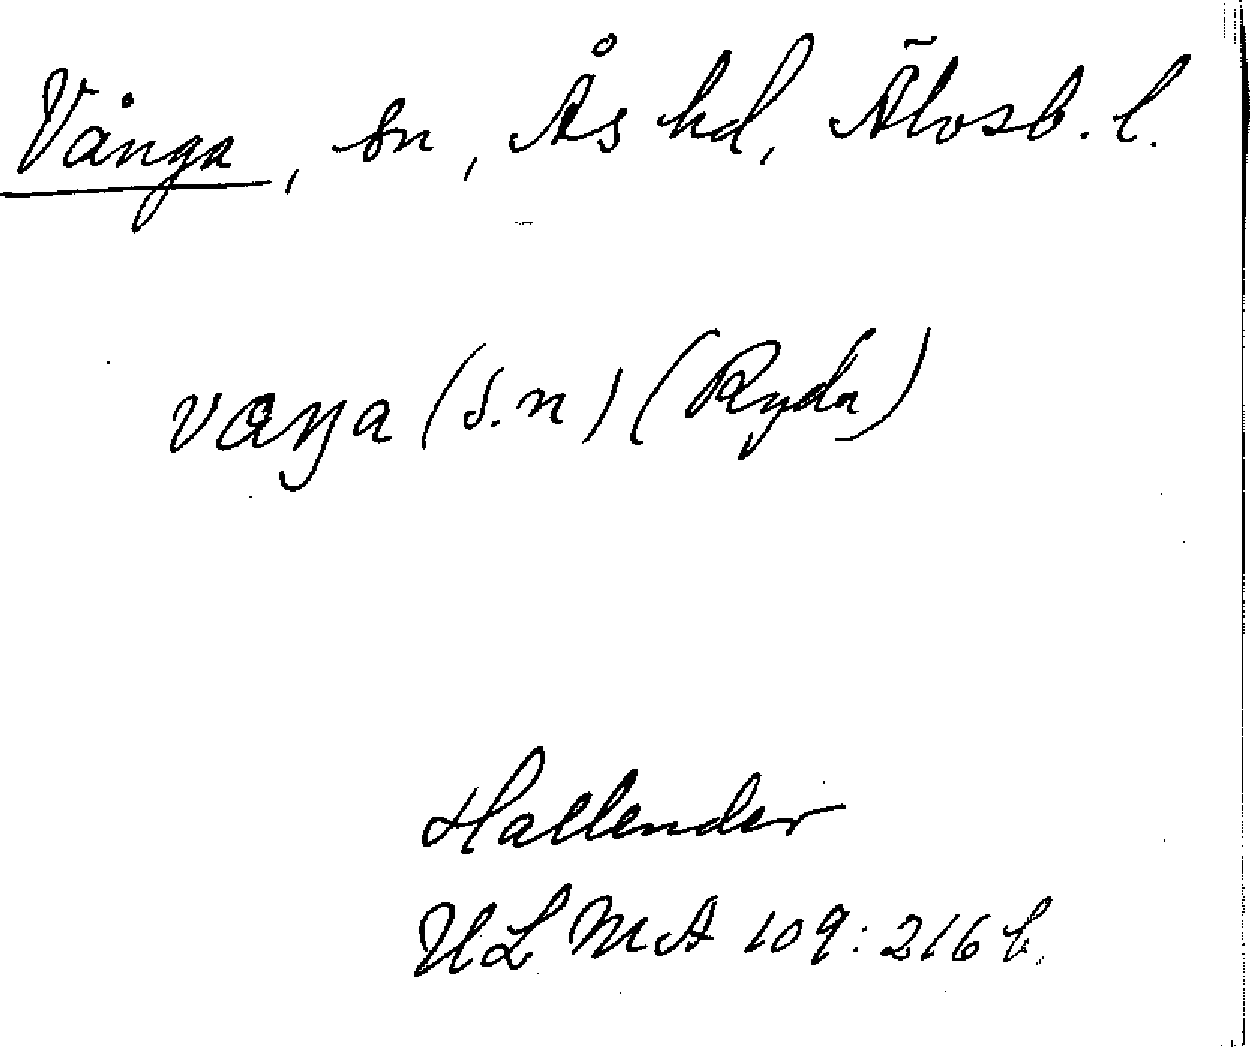 Vånga, sn, Ås hd, Älvsb. l.
vaŋa (s.n) (Ryda)
Hallender
ULMA 109:216 b.